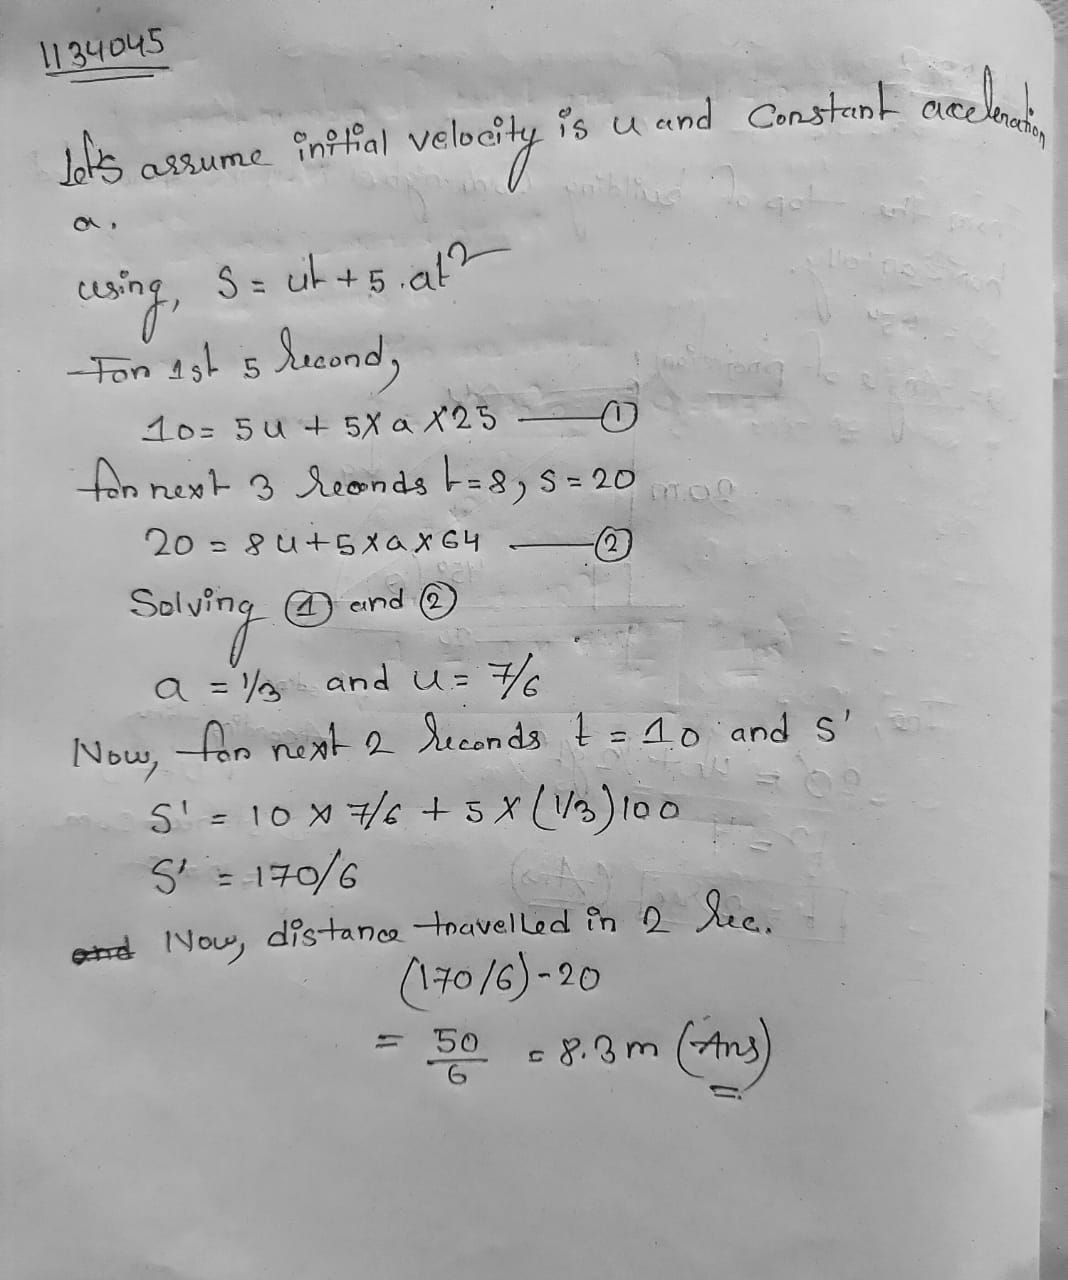 1134045
Let's assume initial velocity is u and Constant acceleration
a.
using, S = ut + 5.at²
For 1st 5 Second,
10 = 5u + 5X a X25 — ①
for next 3 Seconds t=8, S=20
20 = 8u+5xax64 — ②
Solving ① and ②
a = 1/3 and u = 7/6
Now, for next 2 Seconds t = 10 and S'
S' = 10 x 7/6 + 5 X (1/3)100
S' = 170/6
and Now, distance travelled in 2 Sec.
(170/6)-20
= 50/6 = 8.3m (Ans)